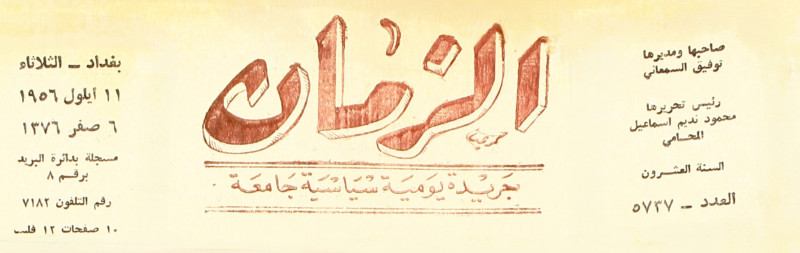 صاحبها ومديرها
توفيق السمعاني
رئيس تحريرها
محمود نديم اسماعيل
المحامي
السنة العشرون
العدد ـ ٥٧٣٧
الزمان
جريدة يومية سياسية جامعة
بغداد ـ الثلاثاء
١١ أيلول ١٩٥٦
٦ صفر ١٣٧٦
مسجلة بدائرة البريد
برقم ٨
رقم التلفون ٧١٨٢
١٠ صفحات ١٢ فلس